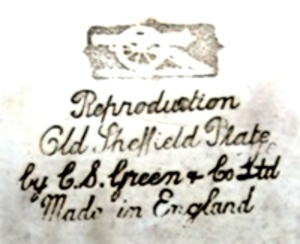 Reproduction
Old Sheffield Plate
by C.S. Green & Co Ltd
Made in England